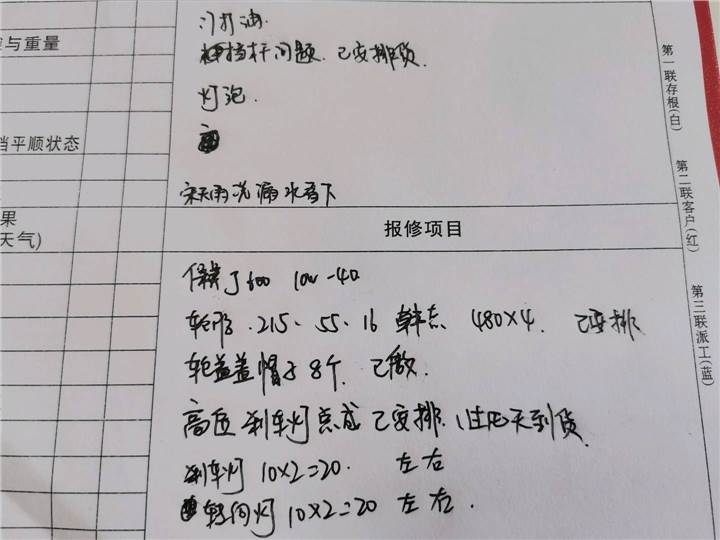 门打油
挡杆问题.已安排货.
灯泡.
与重量
挡平顺状态
漏水
果
天气)
报修项目
保养 600 10w-40
轮胎.215.55.16 韩泰 480×4. 已安排
轮盖盖帽子8个.已缴.
高位刹车灯总成已安排.天到货.
刹车灯 10×2=20. 左右
转向灯 10×2=20 左右.
第一联存根(白)
第二联客户(红)
第三联派工(蓝)